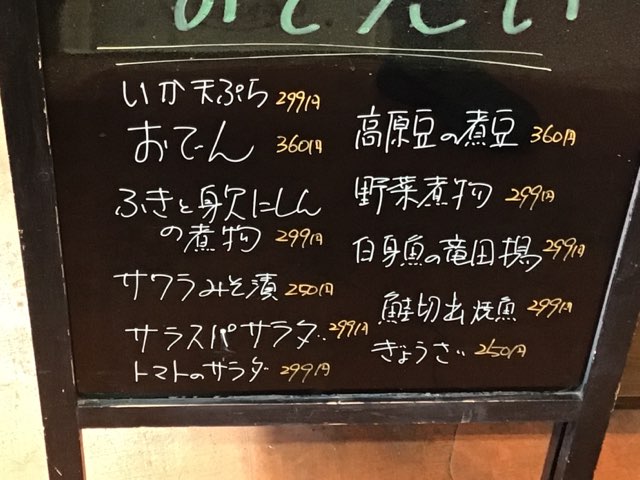 いか天ぷら 299円
おでん 360円
ふきと身欠にしん
の煮物 299円
サワラみそ漬 250円
サラスパサラダ 299円
トマトのサラダ 299円
高原豆の煮豆 360円
野菜煮物 299円
白身魚の竜田揚 299円
鮭切出焼魚 299円
ぎょうざ 250円